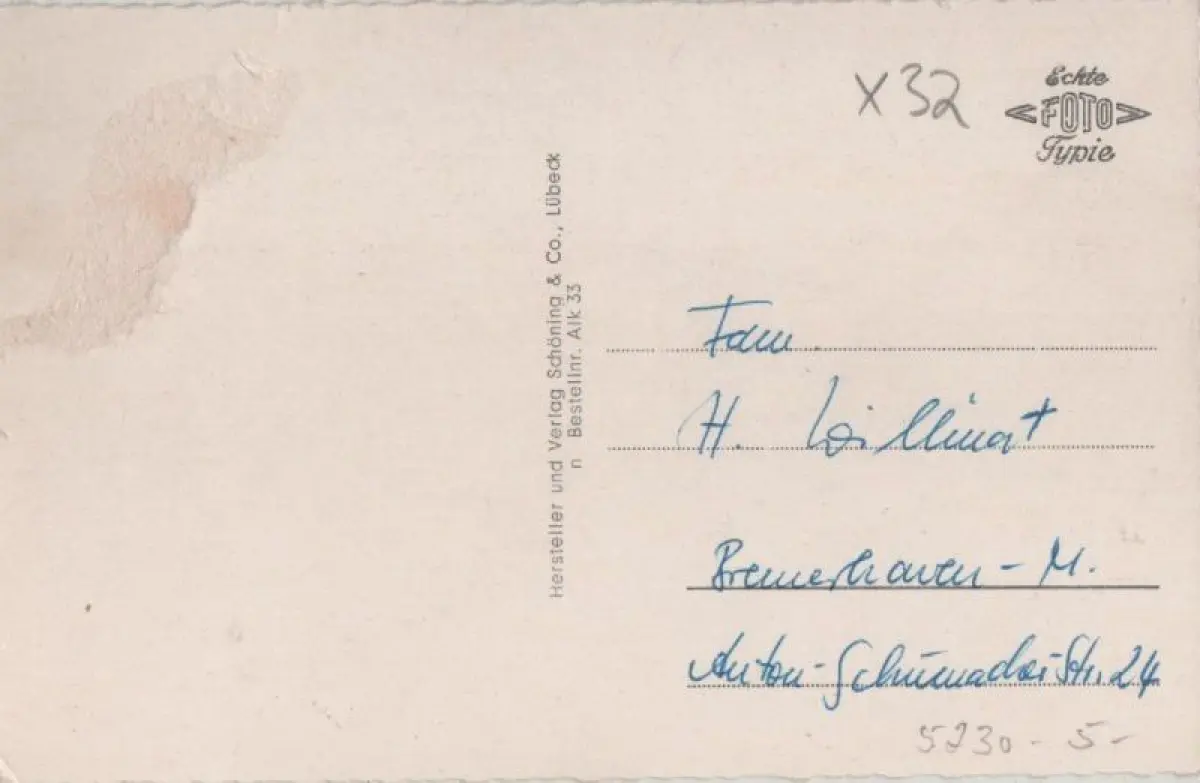 x 32
Echte
FOTO
Typie
Hersteller und Verlag Schöning & Co., Lübeck
n Bestellnr. Alk 33
Fam
H.
Bremerhaven - M.
Anton-Schumacher Str. 24
5230 - 5-